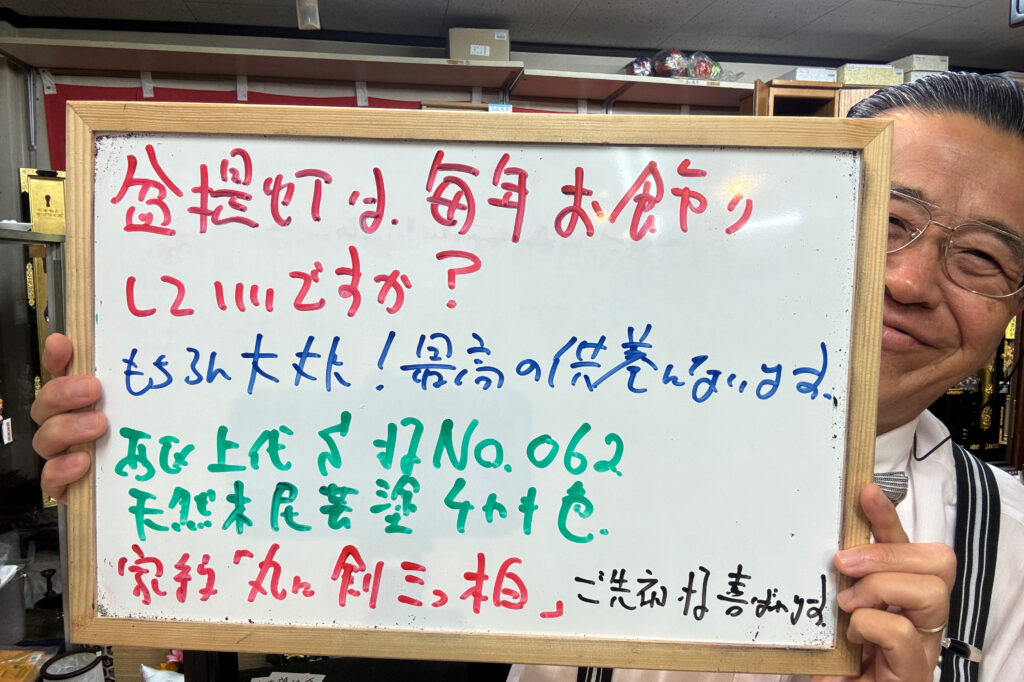 盆提灯は、毎年お飾り
していいですか？
もちろん大丈夫！最高の供養になります。
上代 No.062
天然木民芸塗ケヤキ色。
家紋「丸に剣三つ柏」ご先祖様喜びます。